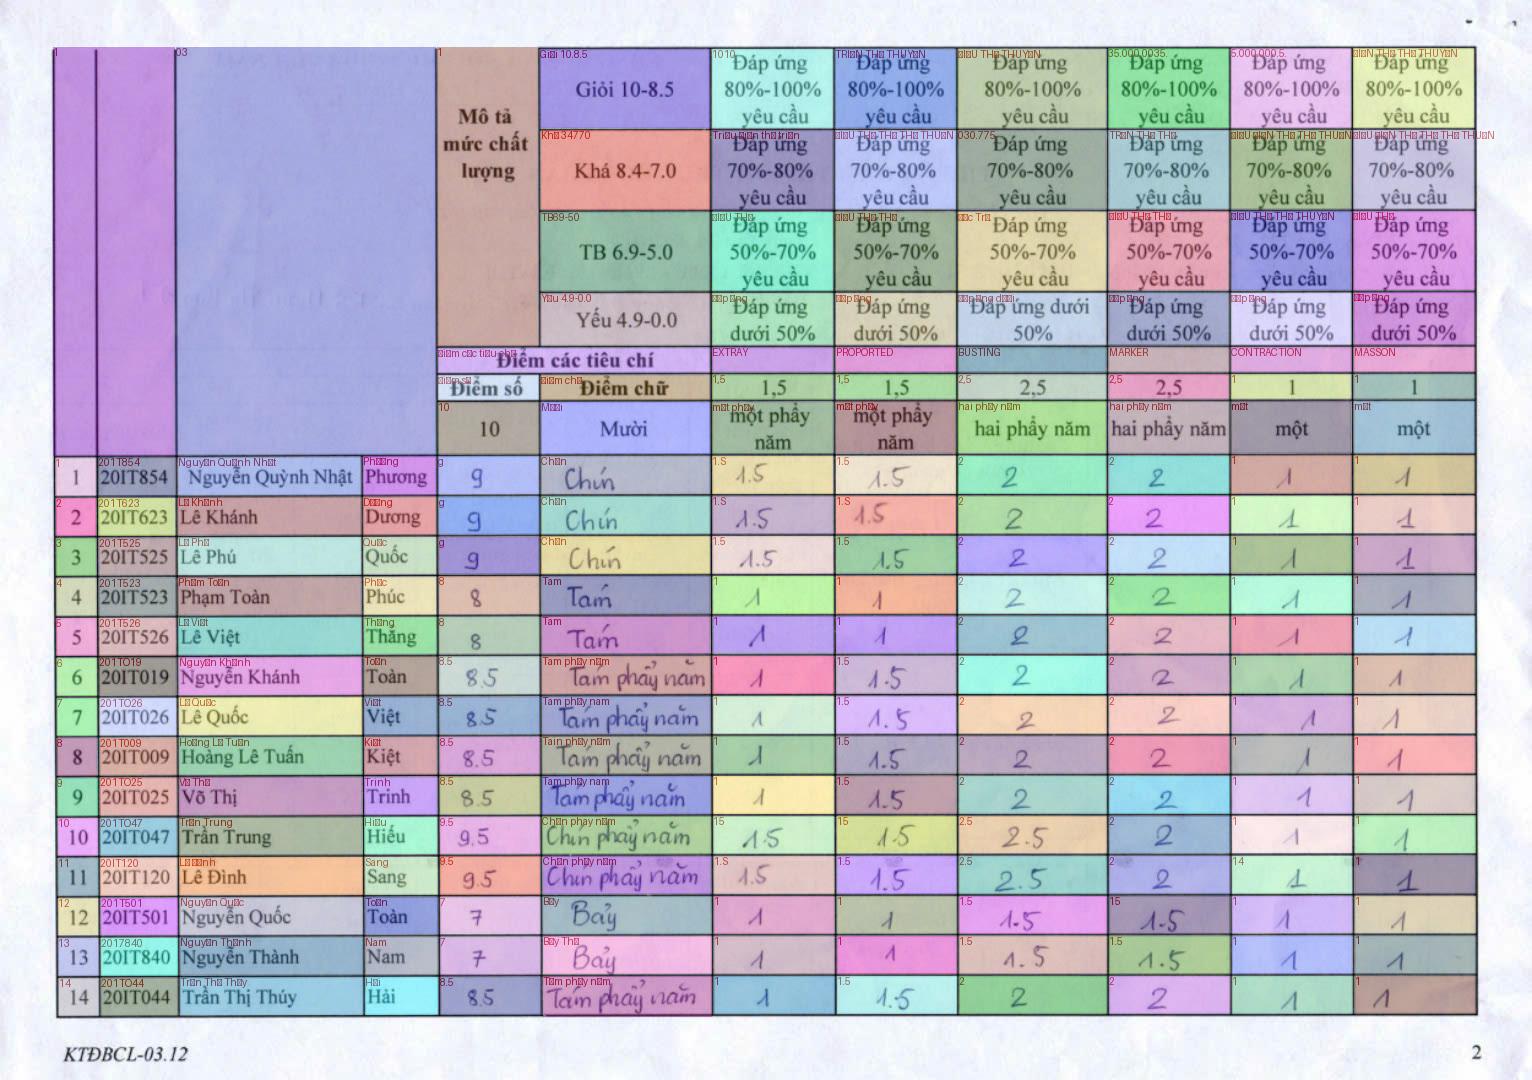 Mô tả mức chất lượng
Giỏi 10-8.5 Đáp ứng 80%-100% yêu cầu Đáp ứng 80%-100% yêu cầu Đáp ứng 80%-100% yêu cầu Đáp ứng 80%-100% yêu cầu Đáp ứng 80%-100% yêu cầu Đáp ứng 80%-100% yêu cầu
Khá 8.4-7.0 Đáp ứng 70%-80% yêu cầu Đáp ứng 70%-80% yêu cầu Đáp ứng 70%-80% yêu cầu Đáp ứng 70%-80% yêu cầu Đáp ứng 70%-80% yêu cầu Đáp ứng 70%-80% yêu cầu
TB 6.9-5.0 Đáp ứng 50%-70% yêu cầu Đáp ứng 50%-70% yêu cầu Đáp ứng 50%-70% yêu cầu Đáp ứng 50%-70% yêu cầu Đáp ứng 50%-70% yêu cầu Đáp ứng 50%-70% yêu cầu
Yếu 4.9-0.0 Đáp ứng dưới 50% Đáp ứng dưới 50% Đáp ứng dưới 50% Đáp ứng dưới 50% Đáp ứng dưới 50% Đáp ứng dưới 50%
Điểm các tiêu chí EXTRAY PROPORTED BUSTING MARKER CONTRACTION MASSON
Điểm số Điểm chữ 1,5 1,5 2,5 2,5 1 1
10 Mười một phẩy năm một phẩy năm hai phẩy năm hai phẩy năm một một
1 20IT854 Nguyễn Quỳnh Nhật Phương 9 Chín 1.5 1.5 2 2 1 1
2 20IT623 Lê Khánh Dương 9 Chín 1.5 1.5 2 2 1 1
3 20IT525 Lê Phú Quốc 9 Chín 1.5 1.5 2 2 1 1
4 20IT523 Phạm Toàn Phúc 8 Tám 1 1 2 2 1 1
5 20IT526 Lê Việt Thăng 8 Tám 1 1 2 2 1 1
6 20IT019 Nguyễn Khánh Toàn 8.5 Tám phẩy năm 1 1.5 2 2 1 1
7 20IT026 Lê Quốc Việt 8.5 Tám phẩy năm 1 1.5 2 2 1 1
8 20IT009 Hoàng Lê Tuấn Kiệt 8.5 Tám phẩy năm 1 1.5 2 2 1 1
9 20IT025 Võ Thị Trinh 8.5 Tám phẩy năm 1 1.5 2 2 1 1
10 20IT047 Trần Trung Hiếu 9.5 Chín phẩy năm 1.5 1.5 2.5 2 1 1
11 20IT120 Lê Đình Sang 9.5 Chín phẩy năm 1.5 1.5 2.5 2 1 1
12 20IT501 Nguyễn Quốc Toàn 7 Bảy 1 1 1.5 1.5 1 1
13 20IT840 Nguyễn Thành Nam 7 Bảy 1 1 1.5 1.5 1 1
14 20IT044 Trần Thị Thúy Hải 8.5 Tám phẩy năm 1 1.5 2 2 1 1
KTĐBCL-03.12 2